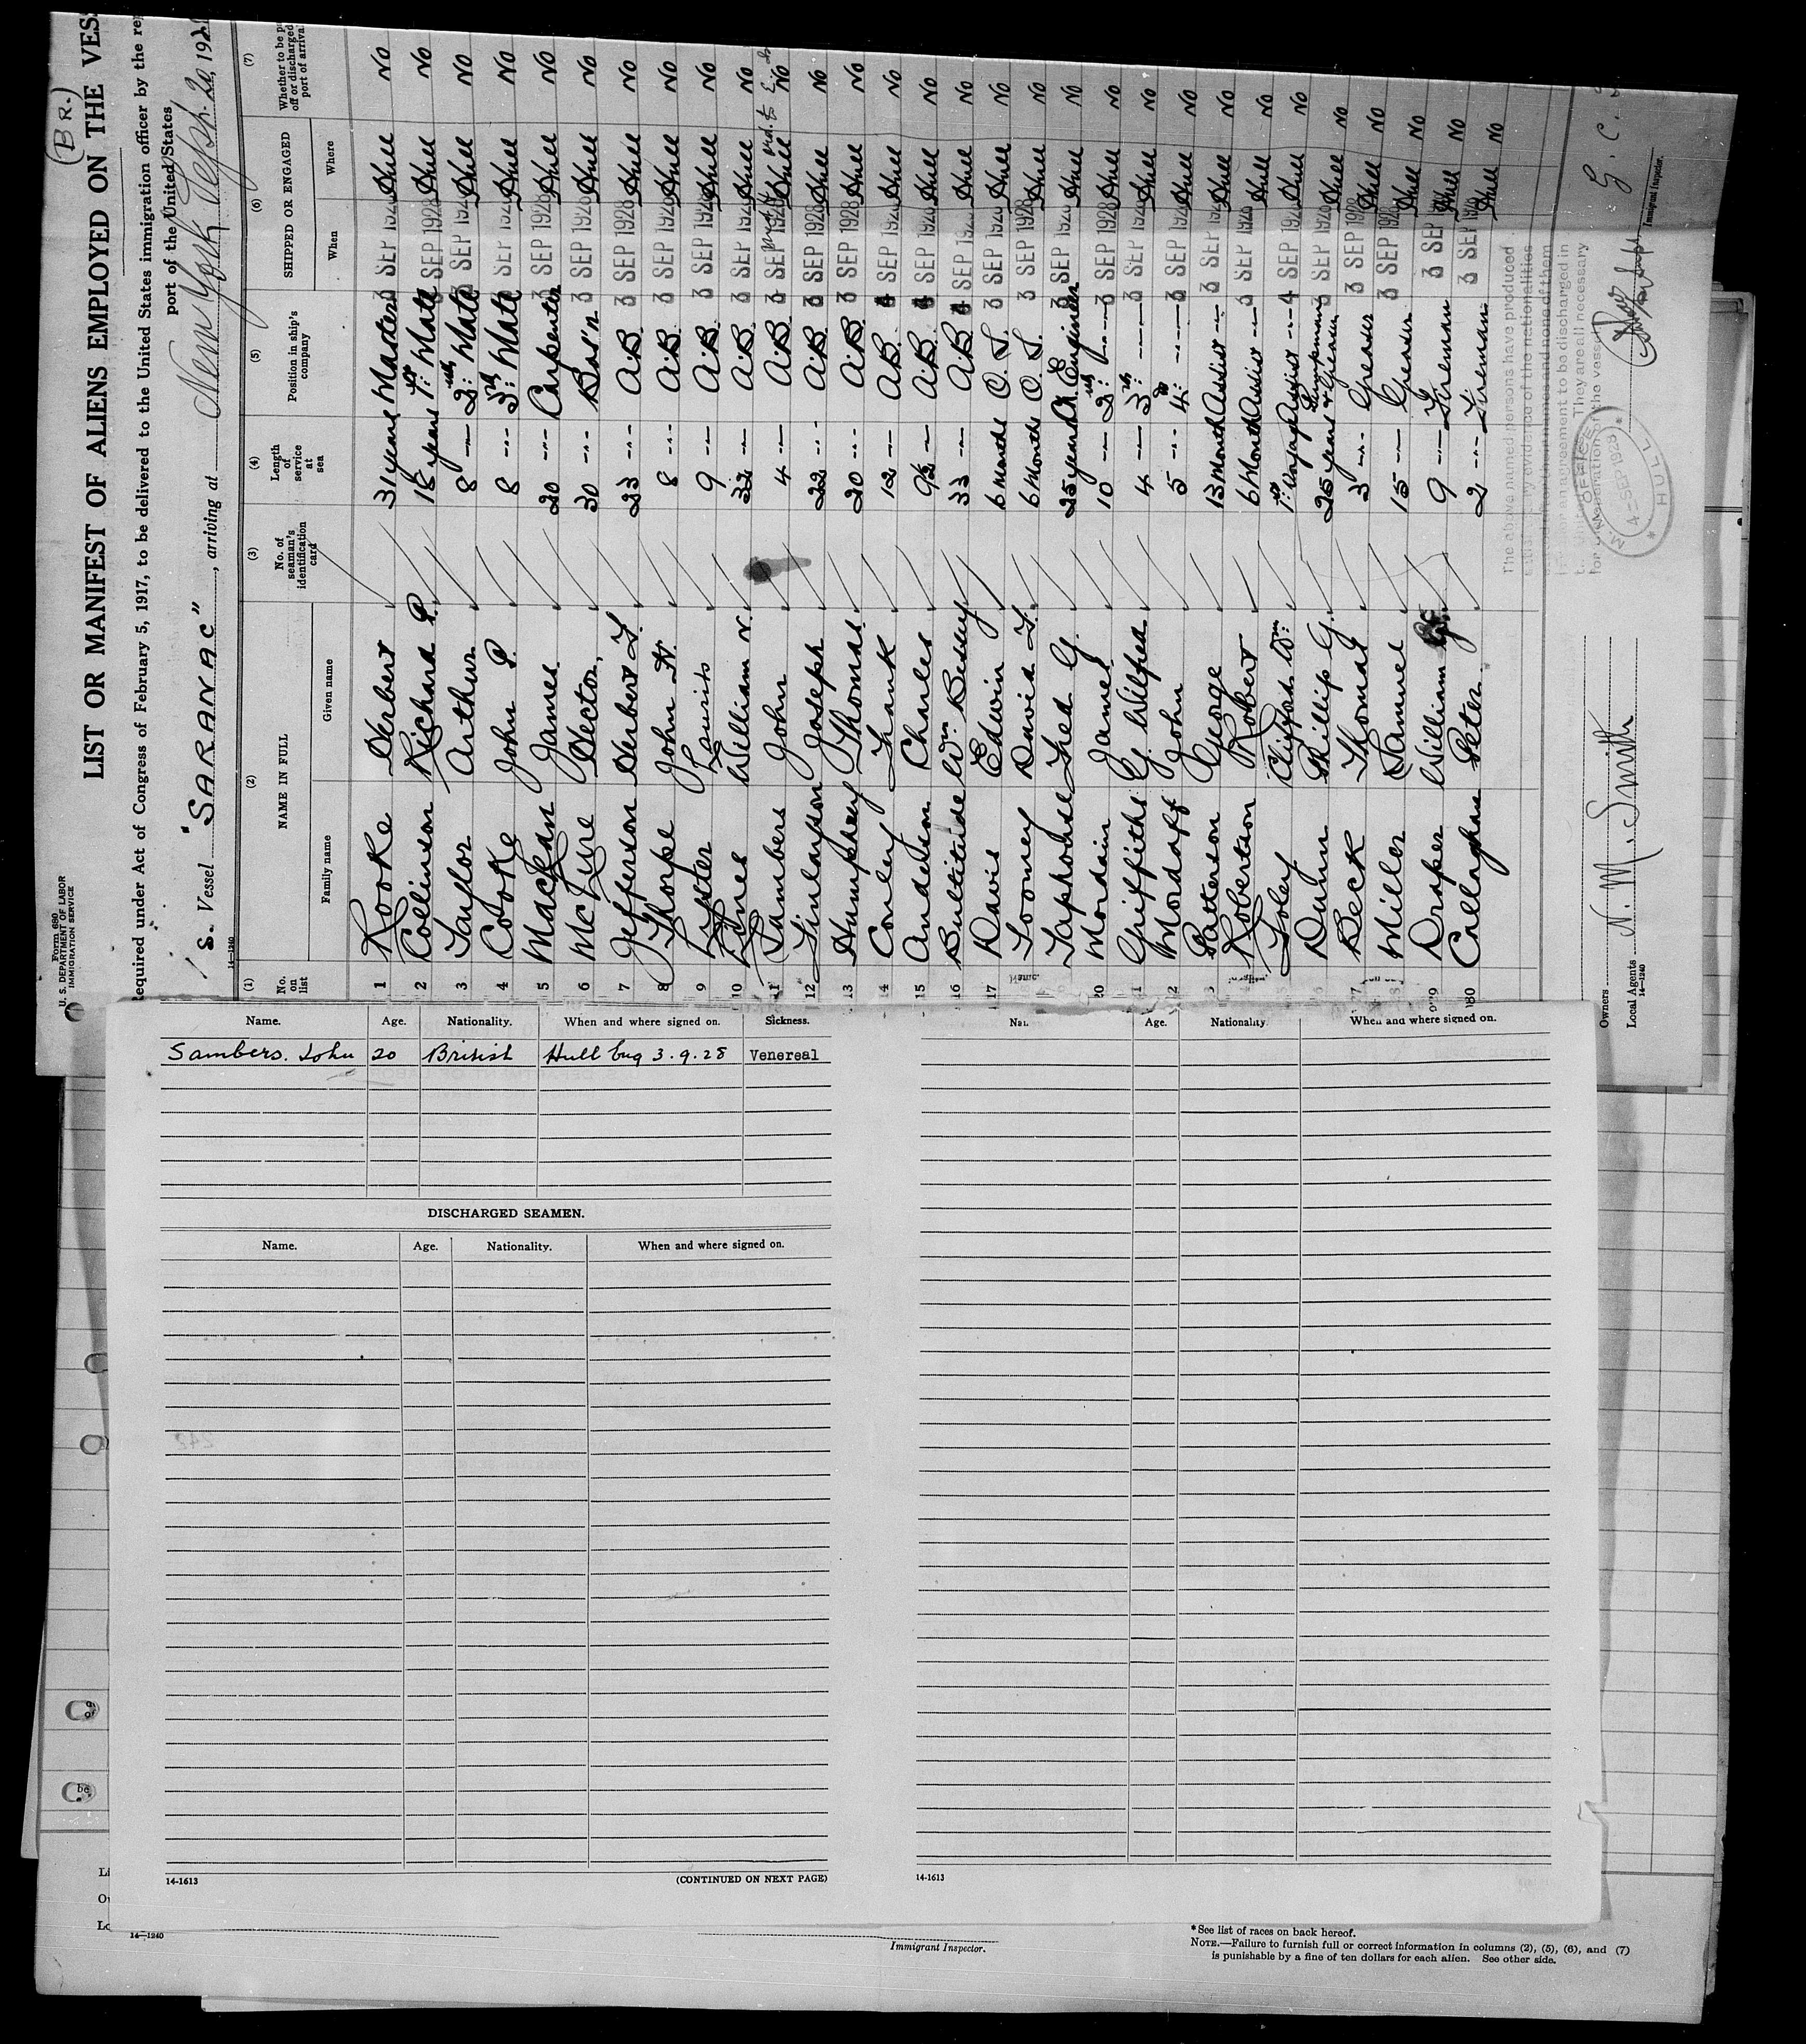 (BR.)
Form 680
U. S. DEPARTMENT OF LABOR
IMMIGRATION SERVICE
LIST OR MANIFEST OF ALIENS EMPLOYED ON THE VESS
equired under Act of Congress of February 5, 1917, to be delivered to the United States immigration officer by the rep
port of the United States
S. Vessel "SARANAC", arriving at New York Sep. 20, 192
14-1240
(1) (2) (3) (4) (5) (6) (7)
No. on list NAME IN FULL No. of seaman's identification card Length of service at sea Position in ship's company SHIPPED OR ENGAGED Whether to be p off or discharged port of arrival
Family name Given name When Where
1 Rooke Herbert 31 years Master 3 SEP 1928 Hull No
2 Collinson Richard P. 18 years 1st Mate 3 SEP 1928 Hull No
3 Taylor Arthur 8 --- 2nd Mate 3 SEP 1928 Hull No
4 Cooke John P. 8 --- 3rd Mate 3 SEP 1928 Hull No
5 Mackean James 20 --- Carpenter 3 SEP 1928 Hull No
6 McLure Hector 30 --- Bos'n 3 SEP 1928 Hull No
7 Jefferson Herbert L. 23 --- A.B. 3 SEP 1928 Hull No
8 Thorpe John H. 8 --- A.B. 3 SEP 1928 Hull No
9 Lauritz 9 --- A.B. 3 SEP 1928 Hull No
10 Jones William N. 32 --- A.B. 3 SEP 1928 Hull No
11 Sambers John 4 --- A.B. 3 SEP 1928 Hull No
12 Finlayson Joseph 22 --- A.B. 3 SEP 1928 Hull No
13 Humphrey Thomas 20 --- A.B. 3 SEP 1928 Hull No
14 Conley Frank 12 --- A.B. 4 SEP 1928 Hull No
15 Anderson Charles 9½ --- A.B. 4 SEP 1928 Hull No
16 Bultitude Wm Bessey 33 --- A.B. 4 SEP 1928 Hull No
17 Davis Edwin 6 Months O.S. 3 SEP 1928 Hull No
Loomey David F. 6 Months O.S. 3 SEP 1928 Hull No
Taphouse Fred G. 25 years Ch. Engineer 3 SEP 1928 Hull No
20 Mordain James 10 --- 2nd --- 3 SEP 1928 Hull No
1 Griffiths G. Wilfred 4 --- 3rd --- 3 SEP 1928 Hull No
2 Mordaff John 5 --- 4th --- 3 SEP 1928 Hull No
3 Patterson George 13 Months Assist --- 3 SEP 1928 Hull No
Robertson Robert 6 Months Assist --- 3 SEP 1928 Hull No
Foley Clifford Wm: 1st Voyage Assist --- 4 SEP 1928 Hull No
Dunn Phillip G. 25 years & Greaser 3 SEP 1928 Hull No
27 Beck Thomas 3 --- Greaser 3 SEP 1928 Hull No
8 Miller Samuel 15 --- Greaser 3 SEP 1928 Hull No
29 Draper William 9 --- Fireman 3 SEP Hull No
30 Callaghan Peter 2 --- Fireman 3 SEP 1928 Hull No
The above named persons have produced
evidence of the nationalities
names and none of them
agreement to be discharged in
They are all necessary
for the vessel
M. M. OFFICE
4-SEP 1928
* HULL *
Immigrant Inspector.
Owners
Local Agents N. M. Smith
14-1240
Name. Age. Nationality. When and where signed on. Sickness.
Sambers. John 20 British Hull Eng 3.9.28 Venereal
DISCHARGED SEAMEN.
Name. Age. Nationality. When and where signed on.
14-1613 (CONTINUED ON NEXT PAGE)
Age. Nationality When and where signed on.
14-1613
14-1240
Immigrant Inspector.
*See list of races on back hereof.
NOTE.—Failure to furnish full or correct information in columns (2), (5), (6), and (7)
is punishable by a fine of ten dollars for each alien. See other side.